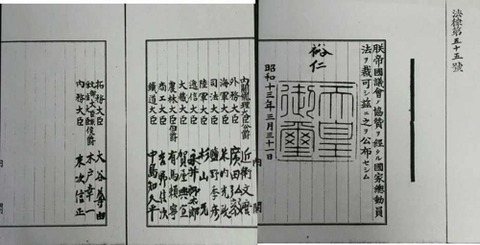 法律第五十五號
朕帝國議會ノ協贊ヲ經タル國家總動員
法ヲ裁可シ茲ニ之ヲ公布セシム
裕仁
天皇御璽
昭和十三年三月三十一日
內閣總理大臣公爵 近衞文麿
外務大臣 廣田弘毅
海軍大臣 米內光政
司法大臣 鹽野季彥
陸軍大臣 杉山元
遞信大臣 永井柳太郎
大藏大臣 賀屋興宣
農林大臣伯爵 有馬賴寧
商工大臣 吉野信次
鐵道大臣 中島知久平
內閣
拓務大臣 大谷尊由
文部大臣 厚生大臣侯爵 木戶幸一
內務大臣 末次信正
內閣